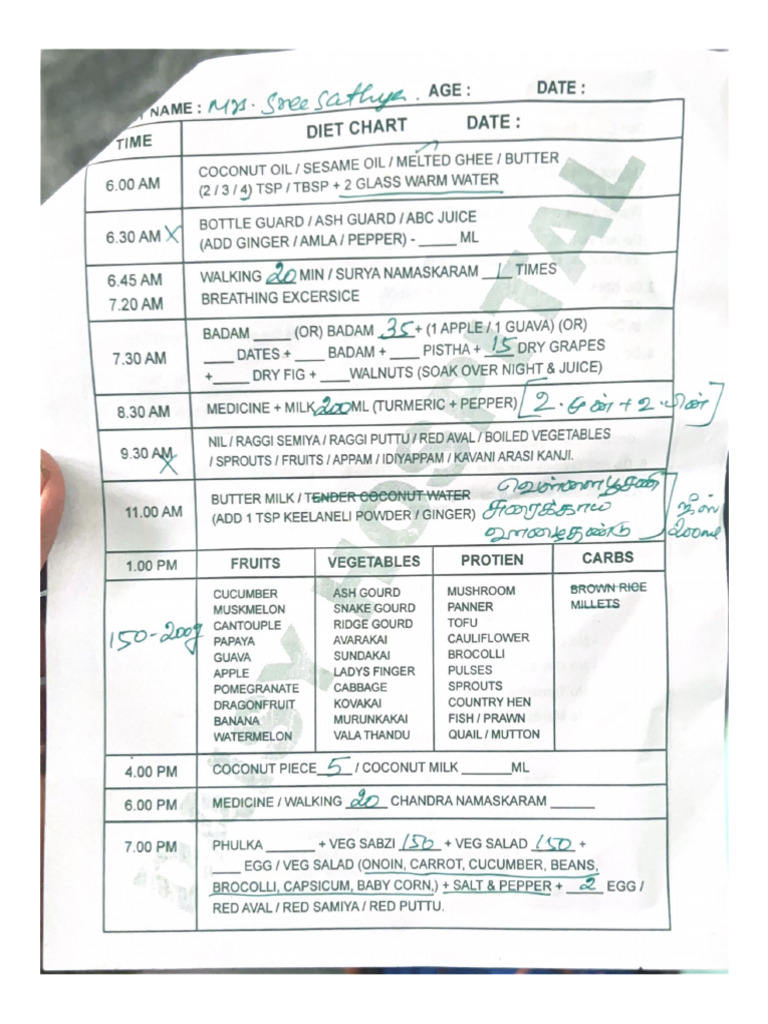 NAME : Mrs. Sree Sathya. AGE : DATE :
TIME DIET CHART DATE :
6.00 AM COCONUT OIL / SESAME OIL / MELTED GHEE / BUTTER
(2 / 3 / 4) TSP / TBSP + 2 GLASS WARM WATER
6.30 AM X BOTTLE GUARD / ASH GUARD / ABC JUICE
(ADD GINGER / AMLA / PEPPER) - _____ ML
6.45 AM WALKING 20 MIN / SURYA NAMASKARAM 1 TIMES
7.20 AM BREATHING EXCERSICE
BADAM _____ (OR) BADAM 35 + (1 APPLE / 1 GUAVA) (OR)
7.30 AM ____ DATES + ____ BADAM + ____ PISTHA + 15 DRY GRAPES
+_____ DRY FIG + ____WALNUTS (SOAK OVER NIGHT & JUICE)
8.30 AM MEDICINE + MILK 200 ML (TURMERIC + PEPPER) [2 - முன் + 2 - பின்]
9.30 AM X NIL / RAGGI SEMIYA / RAGGI PUTTU / RED AVAL / BOILED VEGETABLES
/ SPROUTS / FRUITS / APPAM / IDIYAPPAM / KAVANI ARASI KANJI.
11.00 AM BUTTER MILK / TENDER COCONUT WATER வெள்ளை பூசணி
(ADD 1 TSP KEELANELI POWDER / GINGER) சுரைக்காய் ஜூஸ்
வாழைதண்டு 200ml
1.00 PM FRUITS VEGETABLES PROTIEN CARBS
CUCUMBER ASH GOURD MUSHROOM BROWN RICE
MUSKMELON SNAKE GOURD PANNER MILLETS
150-200g CANTOUPLE RIDGE GOURD TOFU
PAPAYA AVARAKAI CAULIFLOWER
GUAVA SUNDAKAI BROCOLLI
APPLE LADYS FINGER PULSES
POMEGRANATE CABBAGE SPROUTS
DRAGONFRUIT KOVAKAI COUNTRY HEN
BANANA MURUNKAKAI FISH / PRAWN
WATERMELON VALA THANDU QUAIL / MUTTON
4.00 PM COCONUT PIECE 5 / COCONUT MILK _______ML
6.00 PM MEDICINE / WALKING 20 CHANDRA NAMASKARAM ______
7.00 PM PHULKA _______ + VEG SABZI 150 + VEG SALAD 150 +
____ EGG / VEG SALAD (ONOIN, CARROT, CUCUMBER, BEANS,
BROCOLLI, CAPSICUM, BABY CORN,) + SALT & PEPPER + 2 EGG /
RED AVAL / RED SAMIYA / RED PUTTU.